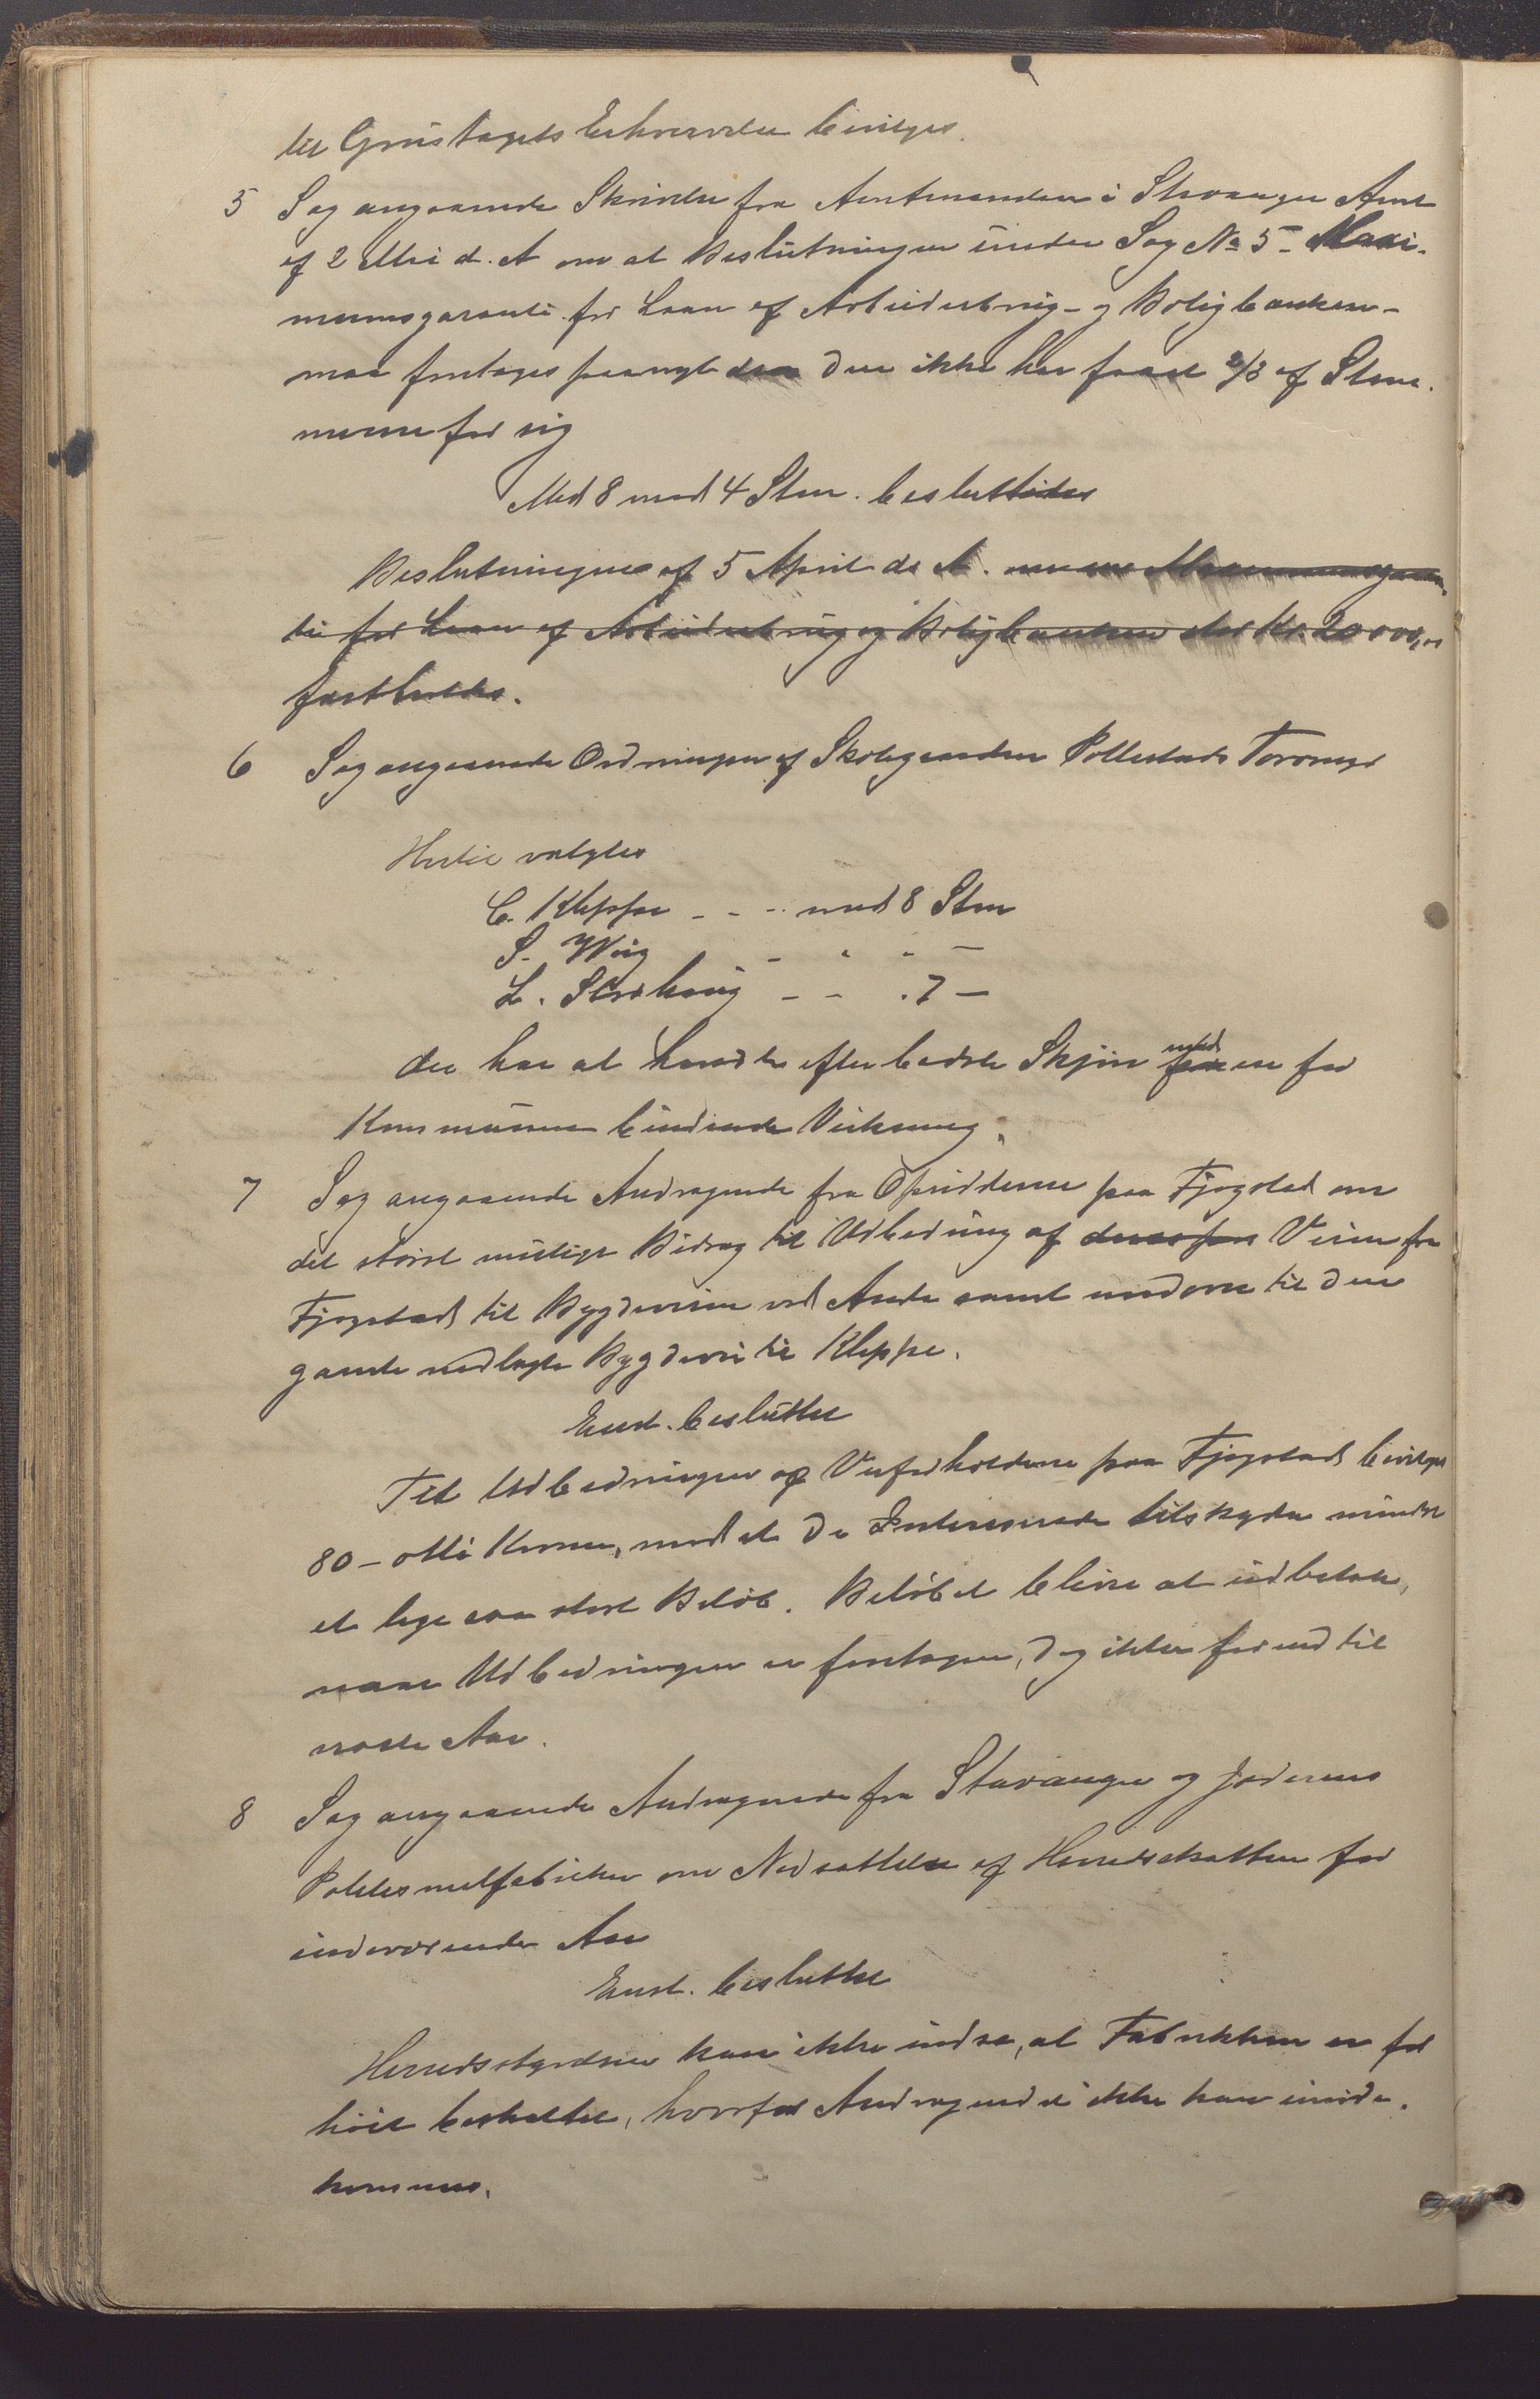 til Grustagets Erhvervelse bevilges.
5 Sag angaaende Skrivelse fra Amtmanden i Stavanger Amt
af 2 Mai d. A om at Beslutningen under Sag No 5 - Maxi-
mumsgaranti for Laan af Arbeiderbrug- og Boligbanken -
maa foretages paanyt da den ikke har faaet 2/3 af Stem-
merne for sig
Med 8 mod 4 Stem. besluttedes
Beslutningen af 5 April d. A. om en Maximumsgaran-
ti for Laan af Arbeiderbrug og Boligbanken stor Kr. 20000,00
fastholdes.
6 Sag angaaende Ordningen af Skolegaarden Pollestads Torvmyr
Hertil valgtes
C. Kleppe - - - med 8 Stem
S. Wiig - " - -
L. Skrikhaug - - . 7 -
der har at handle efter bedste Skjøn med en for
Kommunen bindende Virkning.
7 Sag angaaende Andragende fra Opsidderne paa Fjogstad om
det størst mulige Bidrag til Udbedring af Veien fra
Fjogstad til Bygdeveien ved Anda samt nedover til den
gamle nedlagte Bygdevei til Kleppe.
Enst. besluttet
Til Udbedringen af Veiforholdene paa Fjogstad bevilges
80 - otti Kroner, mod at De Interesserede tilskyder mindst
et lige saa stort Beløb. Beløbet bliver at udbetale,
naar Udbedringen er foretagen, dog ikke førend til
næste Aar.
8 Sag angaaende Andragende fra Stavanger og Jæderens
Potetesmelfabriker om Nedsættelse af Herredsskatten for
indeværende Aar
Enst. besluttet
Herredsstyrelsen kan ikke indse, at Fabrikken er for
høit beskattet, hvorfor Andragendet ikke kan imøde-
kommes.